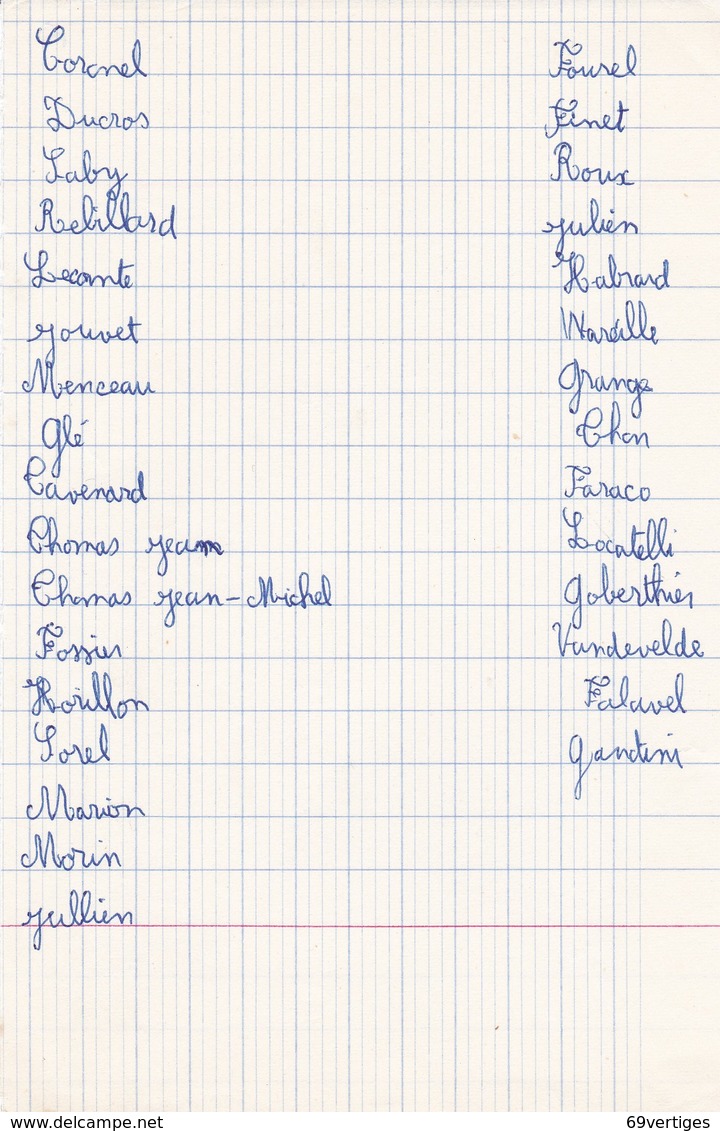 Coronel
Ducros
Saby
Rebillard
Lecomte
Jouvet
Menceau
Glé
Cavenard
Thomas Jean
Thomas Jean-Michel
Fossier
Horillon
Sorel
Marion
Morin
Jullien
Fourel
Finet
Roux
Julien
Habrard
Mareille
Grange
Chon
Faraco
Locatelli
Goberthier
Vandevelde
Falavel
Gandini
www.delcampe.net
69vertiges